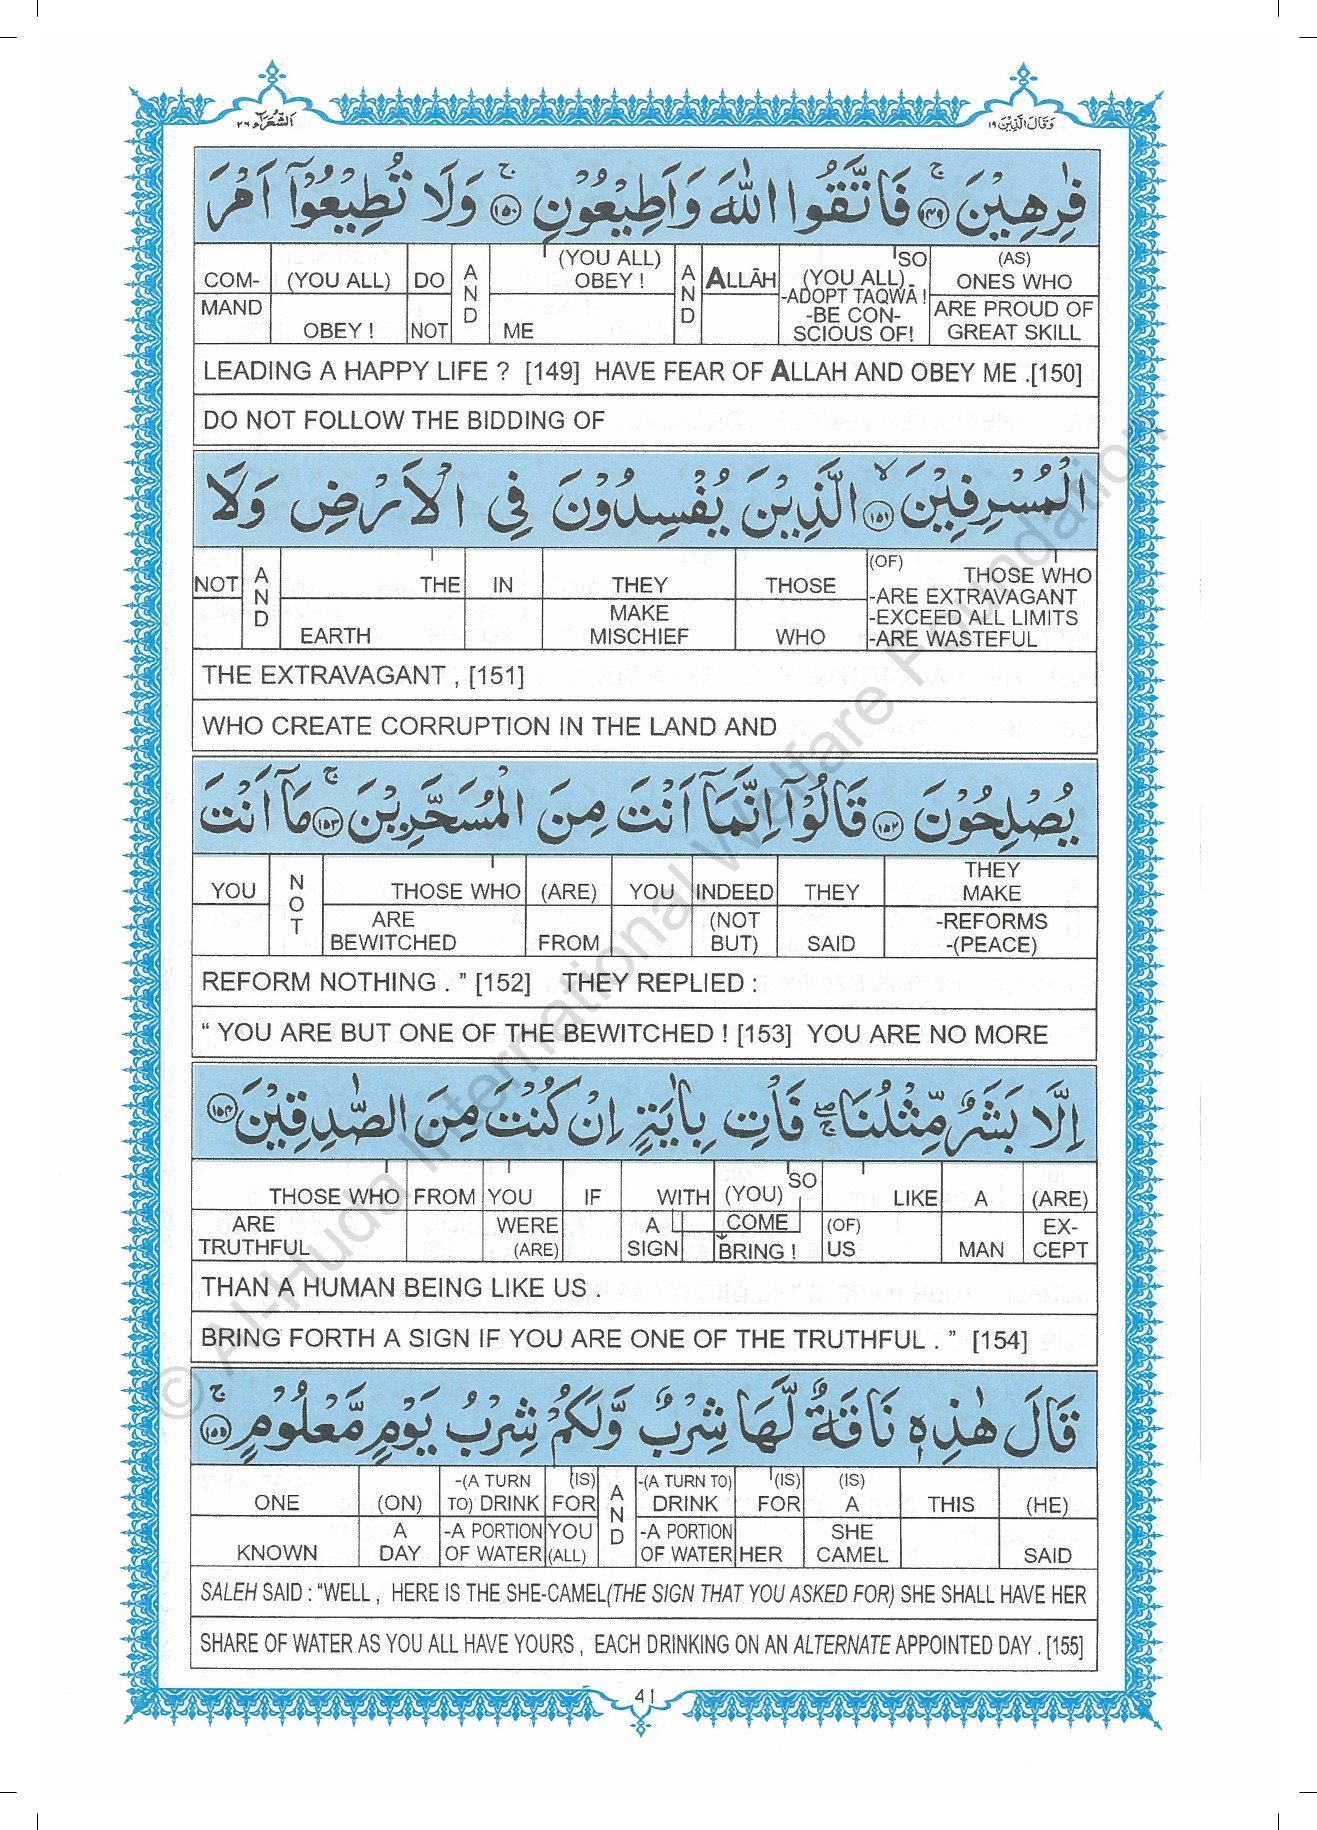 الشُّعَرَآء ٢٦
وَقَالَ الَّذِيْنَ ١٩
فٰرِهِيْنَ ۚ ﴿١٤٩﴾ فَاتَّقُوا اللّٰهَ وَاَطِيْعُوْنِ ۚ ﴿١٥٠﴾ وَلَا تُطِيْعُوْۤا اَمْرَ
COM- (YOU ALL) DO AND (YOU ALL) OBEY ! AND ALLĀH SO (YOU ALL) -ADOPT TAQWA ! (AS) ONES WHO
MAND OBEY ! NOT ME -BE CON- SCIOUS OF! ARE PROUD OF GREAT SKILL
LEADING A HAPPY LIFE ? [149] HAVE FEAR OF ALLAH AND OBEY ME .[150]
DO NOT FOLLOW THE BIDDING OF
الْمُسْرِفِيْنَ ۙ ﴿١٥١﴾ الَّذِيْنَ يُفْسِدُوْنَ فِى الْاَرْضِ وَلَا
NOT AND THE IN THEY THOSE (OF) THOSE WHO -ARE EXTRAVAGANT
EARTH MAKE MISCHIEF WHO -EXCEED ALL LIMITS -ARE WASTEFUL
THE EXTRAVAGANT , [151]
WHO CREATE CORRUPTION IN THE LAND AND
يُصْلِحُوْنَ ﴿١٥٢﴾ قَالُوْۤا اِنَّمَاۤ اَنْتَ مِنَ الْمُسَحَّرِيْنَ ۚ ﴿١٥٣﴾ مَاۤ اَنْتَ
YOU NOT THOSE WHO (ARE) YOU INDEED THEY THEY MAKE
ARE BEWITCHED FROM (NOT BUT) SAID -REFORMS -(PEACE)
REFORM NOTHING . ” [152] THEY REPLIED :
“ YOU ARE BUT ONE OF THE BEWITCHED ! [153] YOU ARE NO MORE
اِلَّا بَشَرٌ مِّثْلُنَا ۖۚ فَاْتِ بِاٰيَةٍ اِنْ كُنْتَ مِنَ الصّٰدِقِيْنَ ﴿١٥٤﴾
THOSE WHO FROM YOU IF WITH (YOU) SO LIKE A (ARE)
ARE TRUTHFUL WERE (ARE) A SIGN COME BRING ! (OF) US MAN EX- CEPT
THAN A HUMAN BEING LIKE US .
BRING FORTH A SIGN IF YOU ARE ONE OF THE TRUTHFUL . ” [154]
قَالَ هٰذِهٖ نَاقَةٌ لَّهَا شِرْبٌ وَّلَكُمْ شِرْبُ يَوْمٍ مَّعْلُوْمٍ ۚ ﴿١٥٥﴾
ONE (ON) -(A TURN TO) DRINK (IS) FOR AND -(A TURN TO) DRINK (IS) FOR (IS) A THIS (HE)
KNOWN A DAY -A PORTION OF WATER YOU (ALL) -A PORTION OF WATER HER SHE CAMEL SAID
SALEH SAID : “WELL , HERE IS THE SHE-CAMEL(THE SIGN THAT YOU ASKED FOR) SHE SHALL HAVE HER
SHARE OF WATER AS YOU ALL HAVE YOURS , EACH DRINKING ON AN ALTERNATE APPOINTED DAY . [155]
41
© Al-Huda International Welfare Foundation